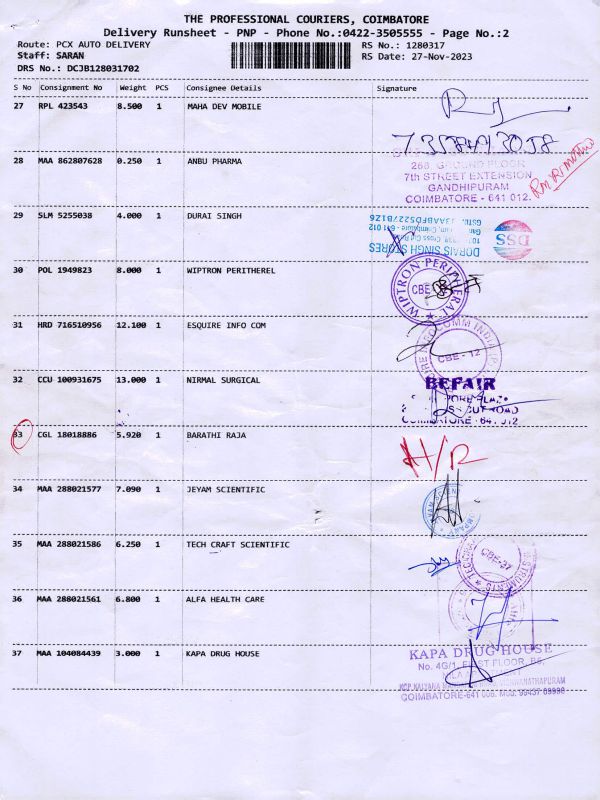 THE PROFESSIONAL COURIERS, COIMBATORE
Delivery Runsheet - PNP - Phone No.:0422-3505555 - Page No.:2
Route: PCX AUTO DELIVERY RS No.: 1280317
Staff: SARAN RS Date: 27-Nov-2023
DRS No.: DCJB128031702
S No Consignment No Weight PCS Consignee Details Signature
27 RPL 423543 8.500 1 MAHA DEV MOBILE
28 MAA 862807628 0.250 1 ANBU PHARMA
268, GROUND FLOOR
7th STREET EXTENSION
GANDHIPURAM
COIMBATORE - 641 012.
29 SLM 5255038 4.000 1 DURAI SINGH
DORAIS SINGH STORES
DSS
30 POL 1949823 8.000 1 WIPTRON PERITHEREL
WIPTRON PERIPHERAL
CBE
31 HRD 716510956 12.100 1 ESQUIRE INFO COM
CBE - 12
32 CCU 100931675 13.000 1 NIRMAL SURGICAL
BEFAIR
COIMBATORE - 641 012
33 CGL 18018886 5.920 1 BARATHI RAJA
H/R
34 MAA 288021577 7.090 1 JEYAM SCIENTIFIC
35 MAA 288021586 6.250 1 TECH CRAFT SCIENTIFIC
CBE-37
36 MAA 288021561 6.800 1 ALFA HEALTH CARE
37 MAA 104084439 3.000 1 KAPA DRUG HOUSE
KAPA DRUG HOUSE
No. 4G/1, FIRST FLOOR, B6,
COIMBATORE-641 006.